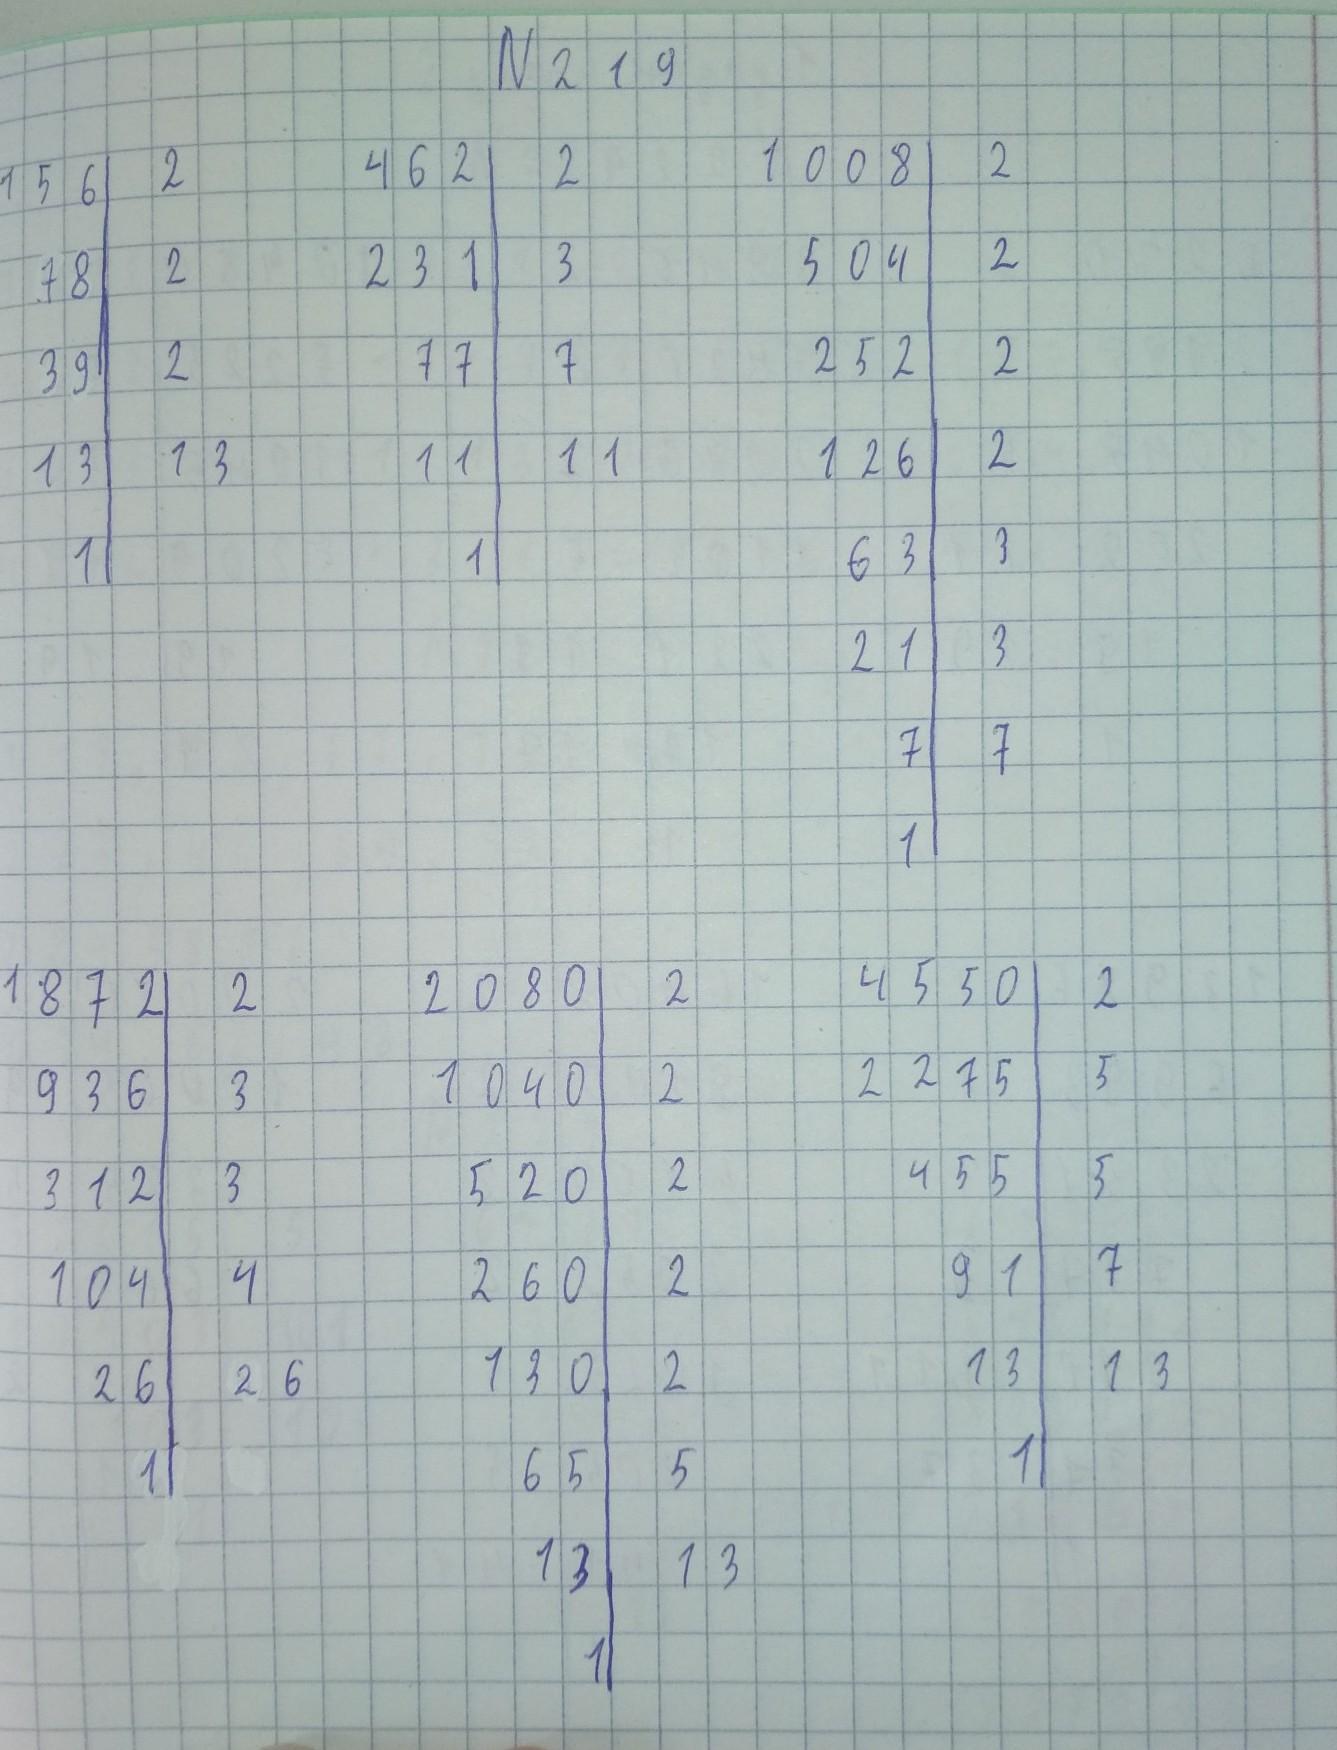 N 219
156 | 2 462 | 2 1008 | 2
78 | 2 231 | 3 504 | 2
39 | 2 77 | 7 252 | 2
13 | 13 11 | 11 126 | 2
1 | 1 | 63 | 3
21 | 3
7 | 7
1 |
1872 | 2 2080 | 2 4550 | 2
936 | 3 1040 | 2 2275 | 5
312 | 3 520 | 2 455 | 5
104 | 4 260 | 2 91 | 7
26 | 26 130 | 2 13 | 13
1 | 65 | 5 1 |
13 | 13
1 |